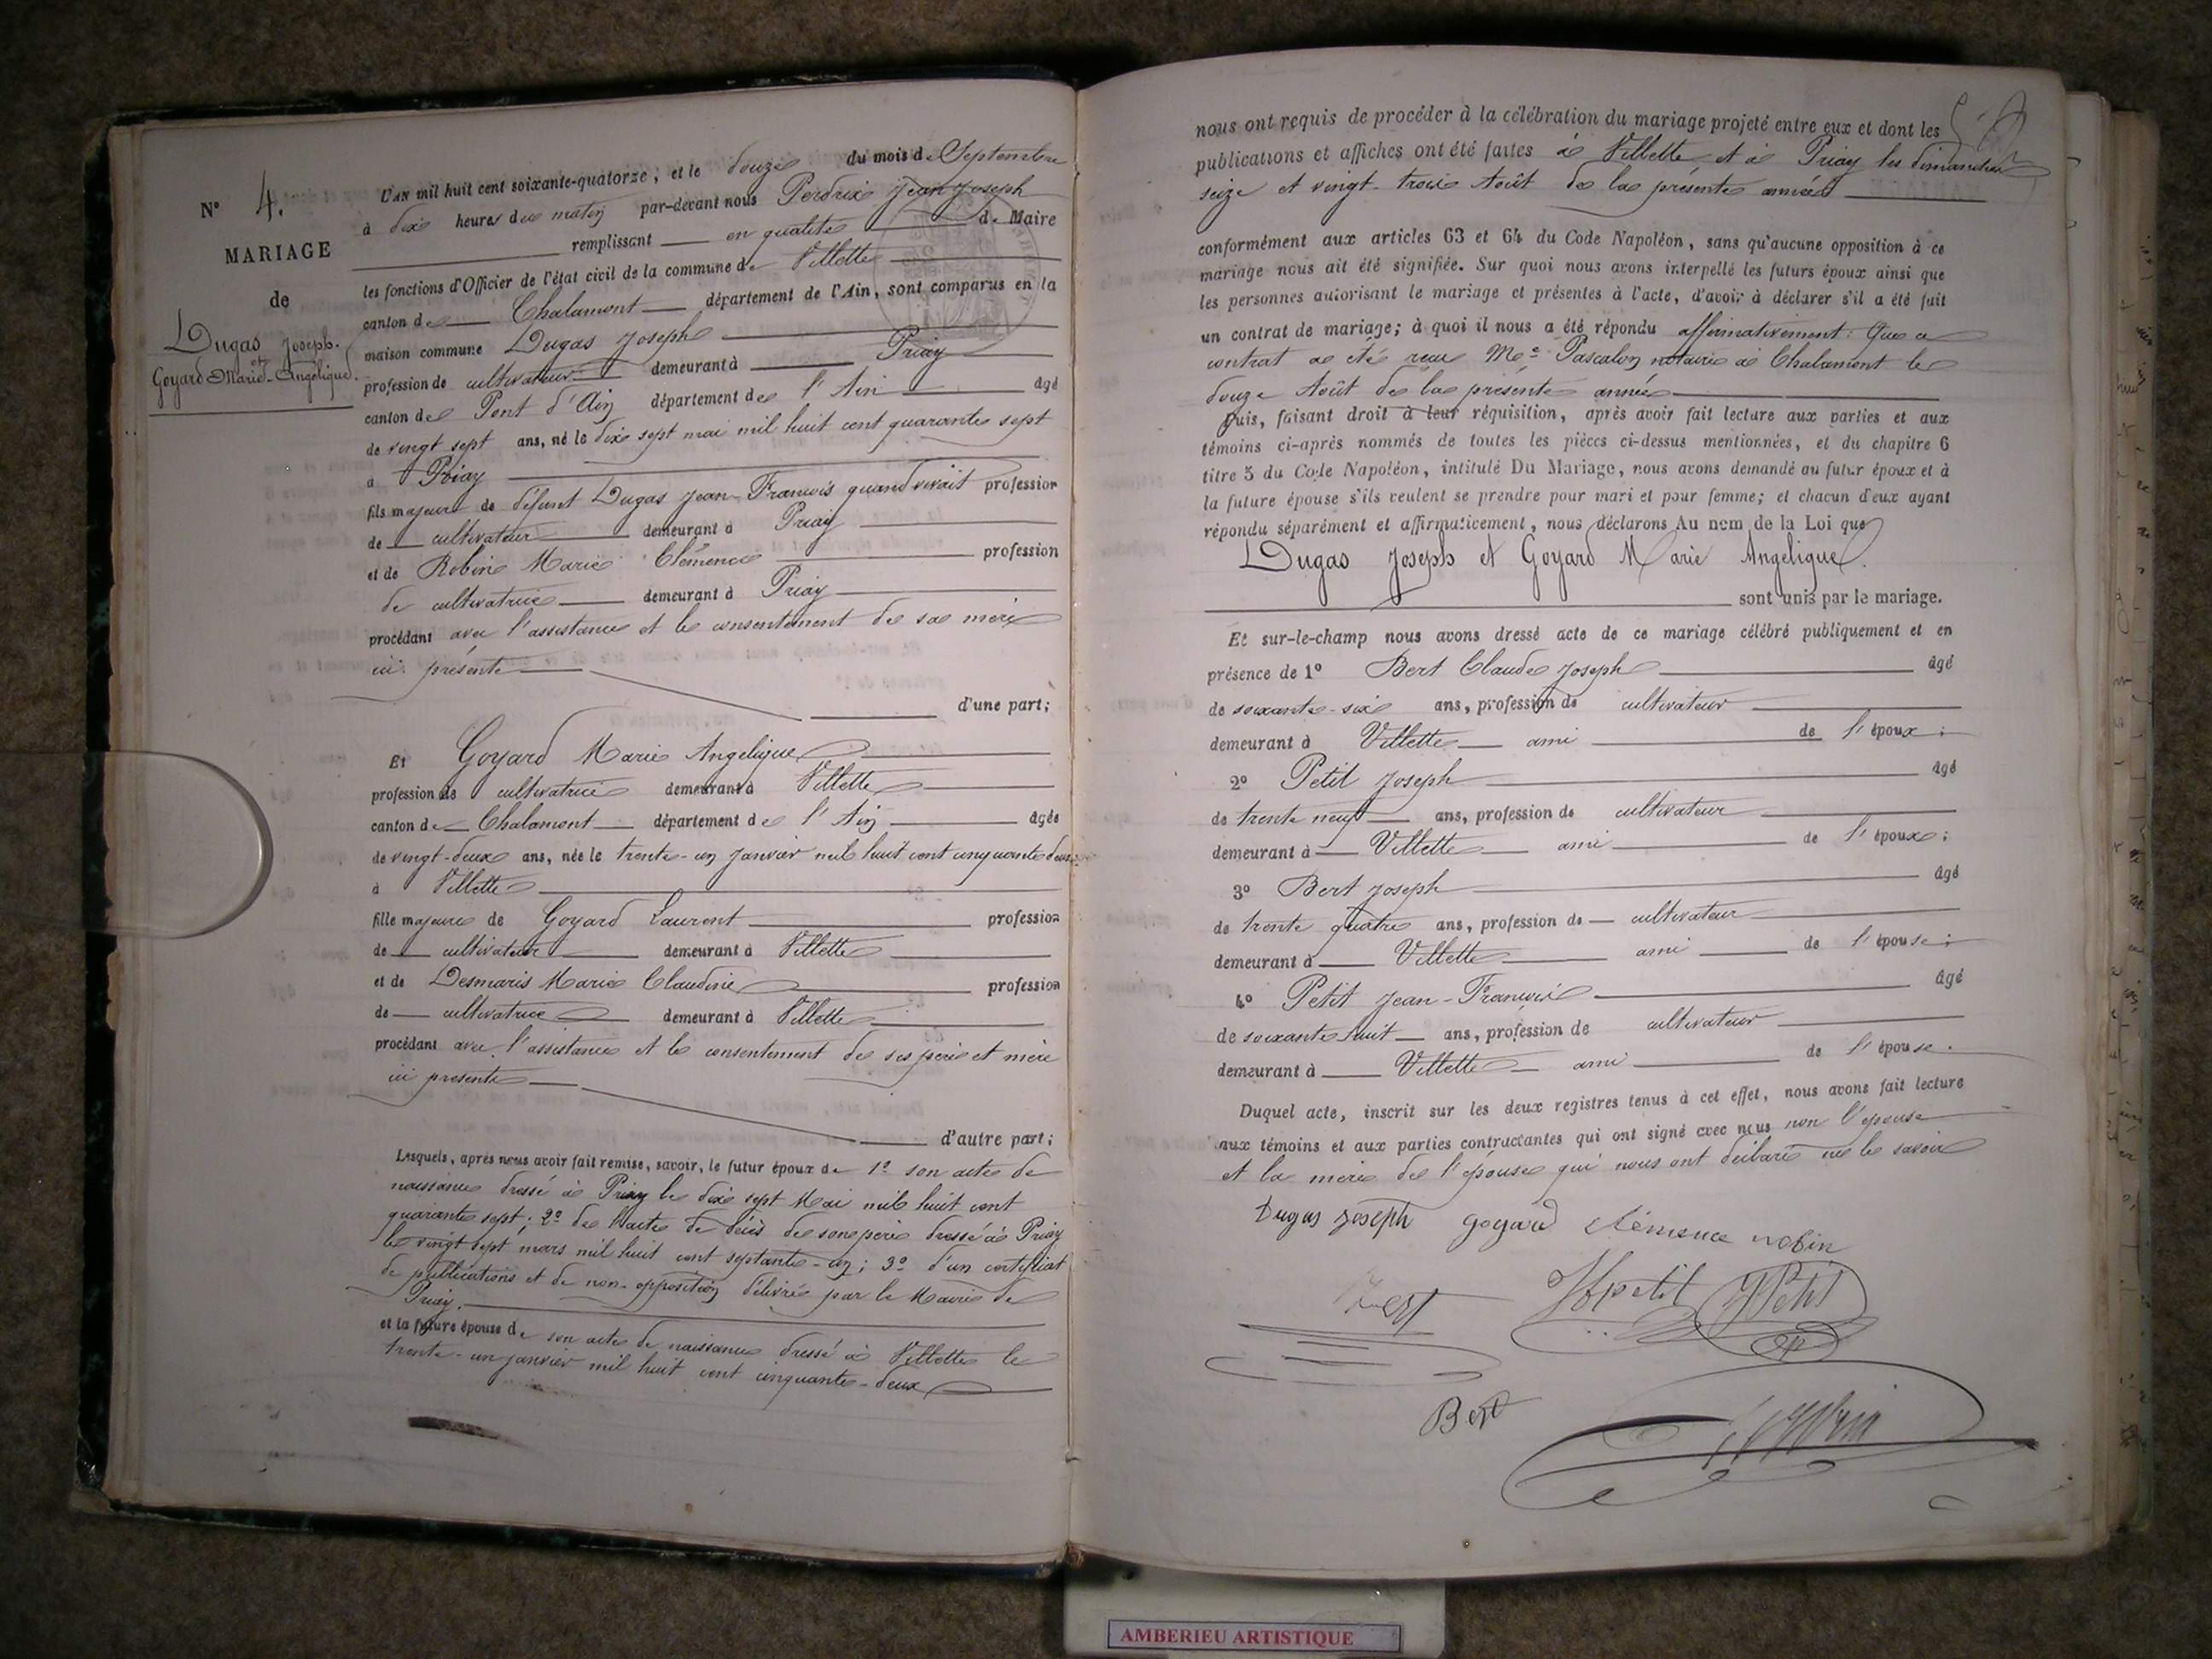 N° 4.
MARIAGE
de
Dugas Joseph.
et
Goyard Marie-Angélique.
L'an mil huit cent soixante-quatorze, et le douze du mois de Septembre
à dix heures du matin par-devant nous Perdrix Jean Joseph
remplissant en qualité de Maire
les fonctions d'Officier de l'état civil de la commune de Villette
canton de Chalamont département de l'Ain, sont comparus en la
maison commune Dugas Joseph
profession de cultivateur demeurant à Priay
canton de Pont d'Ain département de l'Ain âgé
de vingt sept ans, né le dix sept mai mil huit cent quarante sept
à Priay
fils majeur de défunt Dugas Jean-François quand vivait profession
de cultivateur demeurant à Priay
et de Robin Marie Clémence profession
de cultivatrice demeurant à Priay
procédant avec l'assistance et le consentement de sa mère
ici présente
d'une part;
Et Goyard Marie Angélique
profession de cultivatrice demeurant à Villette
canton de Chalamont département de l'Ain âgée
de vingt-deux ans, née le trente-un janvier mil huit cent cinquante deux
à Villette
fille majeure de Goyard Laurent profession
de cultivateur demeurant à Villette
et de Desmaris Marie Claudine profession
de cultivatrice demeurant à Villette
procédant avec l'assistance et le consentement de ses père et mère
ici présente
d'autre part;
Lesquels, après nous avoir fait remise, savoir, le futur époux de 1° son acte de
naissance dressé à Priay le dix sept Mai mil huit cent
quarante sept; 2° de l'acte de décès de son père dressé à Priay
le vingt sept mars mil huit cent septante-un; 3° d'un certificat
de publications et de non-opposition délivré par le Maire de
Priay.
et la future épouse de son acte de naissance dressé à Villette le
trente-un janvier mil huit cent cinquante-deux
nous ont requis de procéder à la célébration du mariage projeté entre eux et dont les
publications et affiches ont été faites à Villette et à Priay les dimanches
seize et vingt-trois Août de la présente année
conformément aux articles 63 et 64 du Code Napoléon, sans qu'aucune opposition à ce
mariage nous ait été signifiée. Sur quoi nous avons interpellé les futurs époux ainsi que
les personnes autorisant le mariage et présentes à l'acte, d'avoir à déclarer s'il a été fait
un contrat de mariage; à quoi il nous a été répondu affirmativement: Que ce
contrat a été reçu Me Pascalon notaire à Chalamont le
douze Août de la présente année
Puis, faisant droit à leur réquisition, après avoir fait lecture aux parties et aux
témoins ci-après nommés de toutes les pièces ci-dessus mentionnées, et du chapitre 6
titre 5 du Code Napoléon, intitulé Du Mariage, nous avons demandé au futur époux et à
la future épouse s'ils veulent se prendre pour mari et pour femme; et chacun d'eux ayant
répondu séparément et affirmativement, nous déclarons Au nom de la Loi que
Dugas Joseph et Goyard Marie Angélique
sont unis par le mariage.
Et sur-le-champ nous avons dressé acte de ce mariage célébré publiquement et en
présence de 1° Bert Claude Joseph âgé
de soixante-six ans, profession de cultivateur
demeurant à Villette ami de l'époux;
2° Petit Joseph âgé
de trente neuf ans, profession de cultivateur
demeurant à Villette ami de l'époux;
3° Bert Joseph âgé
de trente quatre ans, profession de cultivateur
demeurant à Villette ami de l'épouse;
4° Petit Jean-François âgé
de soixante huit ans, profession de cultivateur
demeurant à Villette ami de l'épouse.
Duquel acte, inscrit sur les deux registres tenus à cet effet, nous avons fait lecture
aux témoins et aux parties contractantes qui ont signé avec nous non l'épouse
et la mère de l'épouse qui nous ont déclaré ne le savoir
Dugas Joseph Goyard clémence robin
Bert petit J Petit
Bert
AMBERIEU ARTISTIQUE